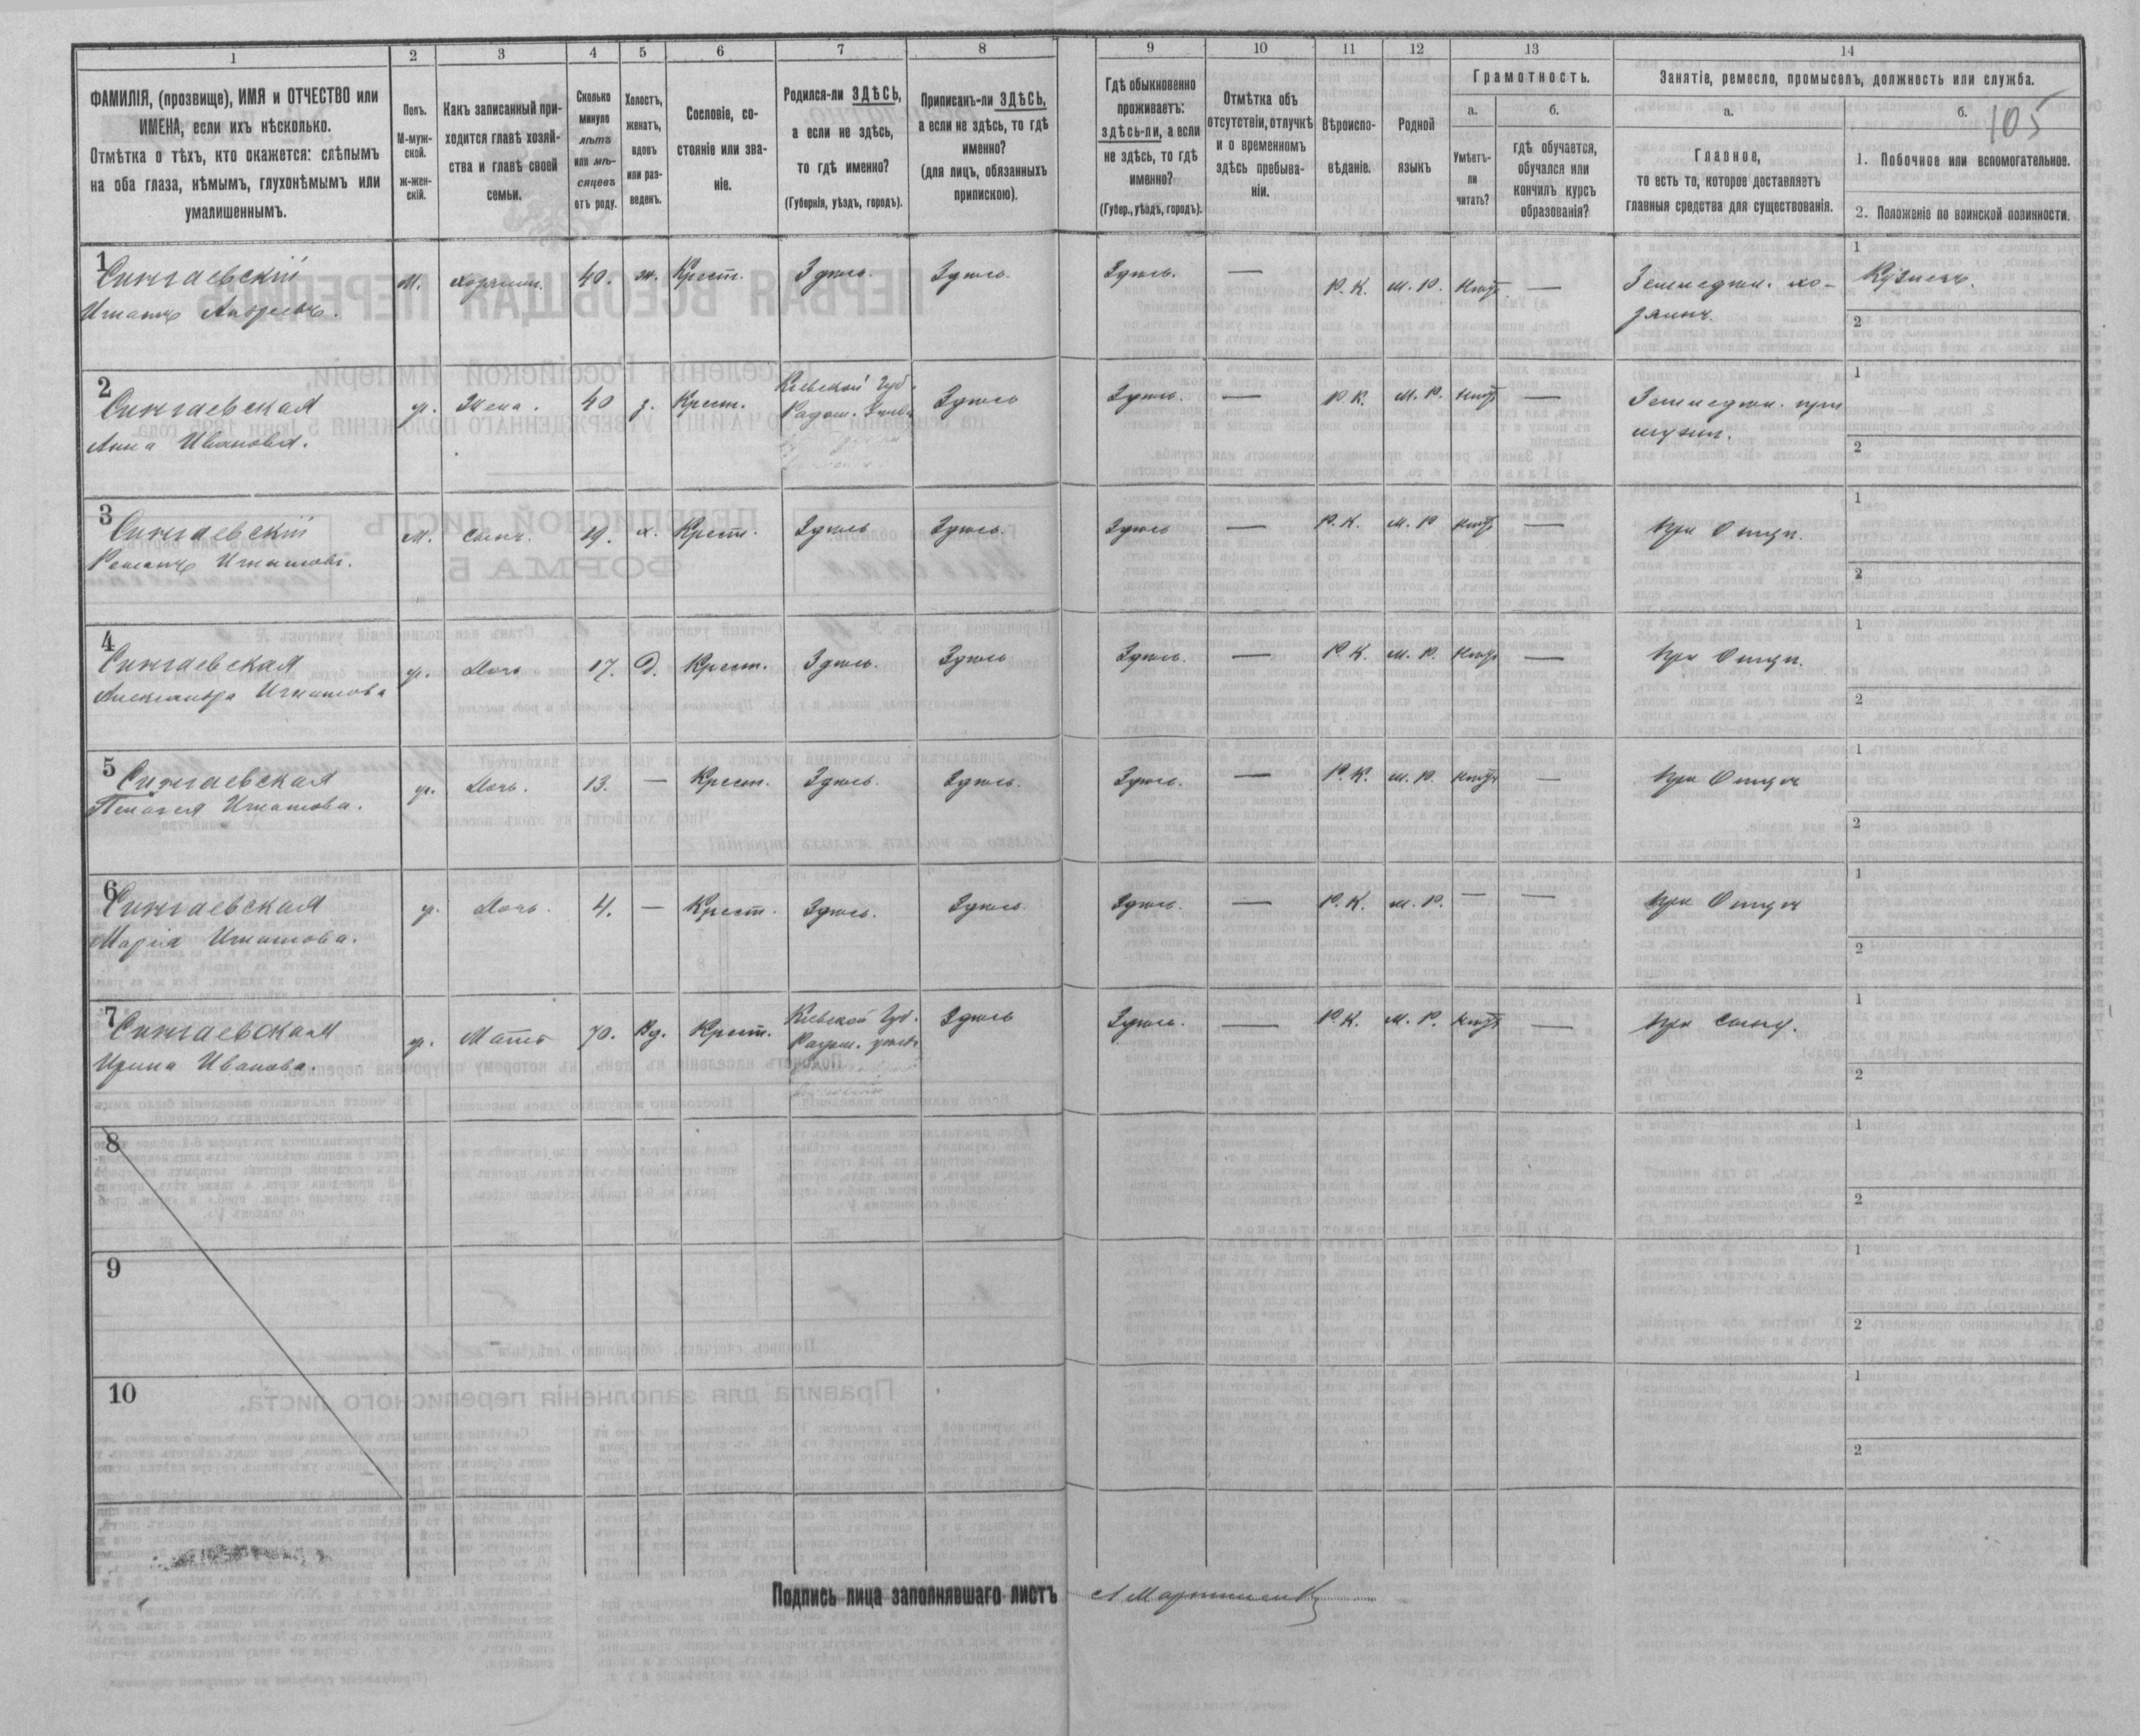 1 2 3 4 5 6 7 8 9 10 11 12 13 14
ФАМИЛІЯ, (прозвище), ИМЯ и ОТЧЕСТВО или
ИМЕНА, если ихъ нѣсколько.
Отмѣтка о тѣхъ, кто окажется: слѣпымъ
на оба глаза, нѣмымъ, глухонѣмымъ или
умалишеннымъ.
Полъ.
М-муж-
ской.
ж-жен-
скій.
Какъ записанный при-
ходится главѣ хозяй-
ства и главѣ своей
семьи.
Сколько
минуло
лѣтъ
или мѣ-
сяцевъ
отъ роду.
Холостъ,
женатъ,
вдовъ
или раз-
веденъ.
Сословіе, со-
стояніе или зва-
ніе.
Родился-ли ЗДѢСЬ,
а если не здѣсь,
то гдѣ именно?
(Губернія, уѣздъ, городъ).
Приписанъ-ли ЗДѢСЬ,
а если не здѣсь, то гдѣ
именно?
(для лицъ, обязанныхъ
припискою).
Гдѣ обыкновенно
проживаетъ:
здѣсь-ли, а если
не здѣсь, то гдѣ
именно?
(Губер., уѣздъ, городъ).
Отмѣтка объ
отсутствіи, отлучкѣ
и о временномъ
здѣсь пребыва-
ніи.
Вѣроиспо-
вѣданіе.
Родной
языкъ
Грамотность.
а.
Умѣетъ-
ли
читать?
б.
гдѣ обучается,
обучался или
кончилъ курсъ
образованія?
Занятіе, ремесло, промыселъ, должность или служба.
а.
Главное,
то есть то, которое доставляетъ
главныя средства для существованія.
б.
105
1. Побочное или вспомогательное.
2. Положеніе по воинской повинности.
1 Сингаевскій М. хозяинъ. 40. ж. Крест. Здѣсь. Здѣсь. Здѣсь. — Р. К. М. Р. нѣтъ — Земледѣл. хо- 1 Кузнецъ.
Игнатъ Андреевъ. зяинъ. 2
2 Сингаевская ж. Жена. 40 з. Крест. Кіевской Губ. Здѣсь Здѣсь. — Р. К. М. Р. нѣтъ — Земледѣл. при 1
Анна Иванова. Радом. мужѣ. 2
3 Сингаевскій М. Сынъ. 19. х. Крест. Здѣсь Здѣсь. Здѣсь — Р. К. М. Р. нѣтъ — при Отцѣ. 1
Романъ Игнатовъ. 2
4 Сингаевская ж. Дочь 17. Д. Крест. Здѣсь. Здѣсь Здѣсь. — Р. К. М. Р. нѣтъ — при Отцѣ. 1
Александра Игнатова 2
5 Сингаевская ж. Дочь. 13. — Крест. Здѣсь. Здѣсь. Здѣсь. — Р. К. М. Р. нѣтъ — при Отцѣ 1
Пелагея Игнатова. 2
6 Сингаевская ж. Дочь. 4. — Крест. Здѣсь. Здѣсь. Здѣсь. — Р. К. М. Р. — — при Отцѣ 1
Марія Игнатова. 2
7 Сингаевская ж. Мать 70. Вд. Крест. Кіевской Губ. Здѣсь Здѣсь. — Р. К. М. Р. нѣтъ — при сынѣ. 1
Ирина Иванова. Радом. 2
8 1
2
9 1
2
10 1
2
Подпись лица заполнявшаго листъ